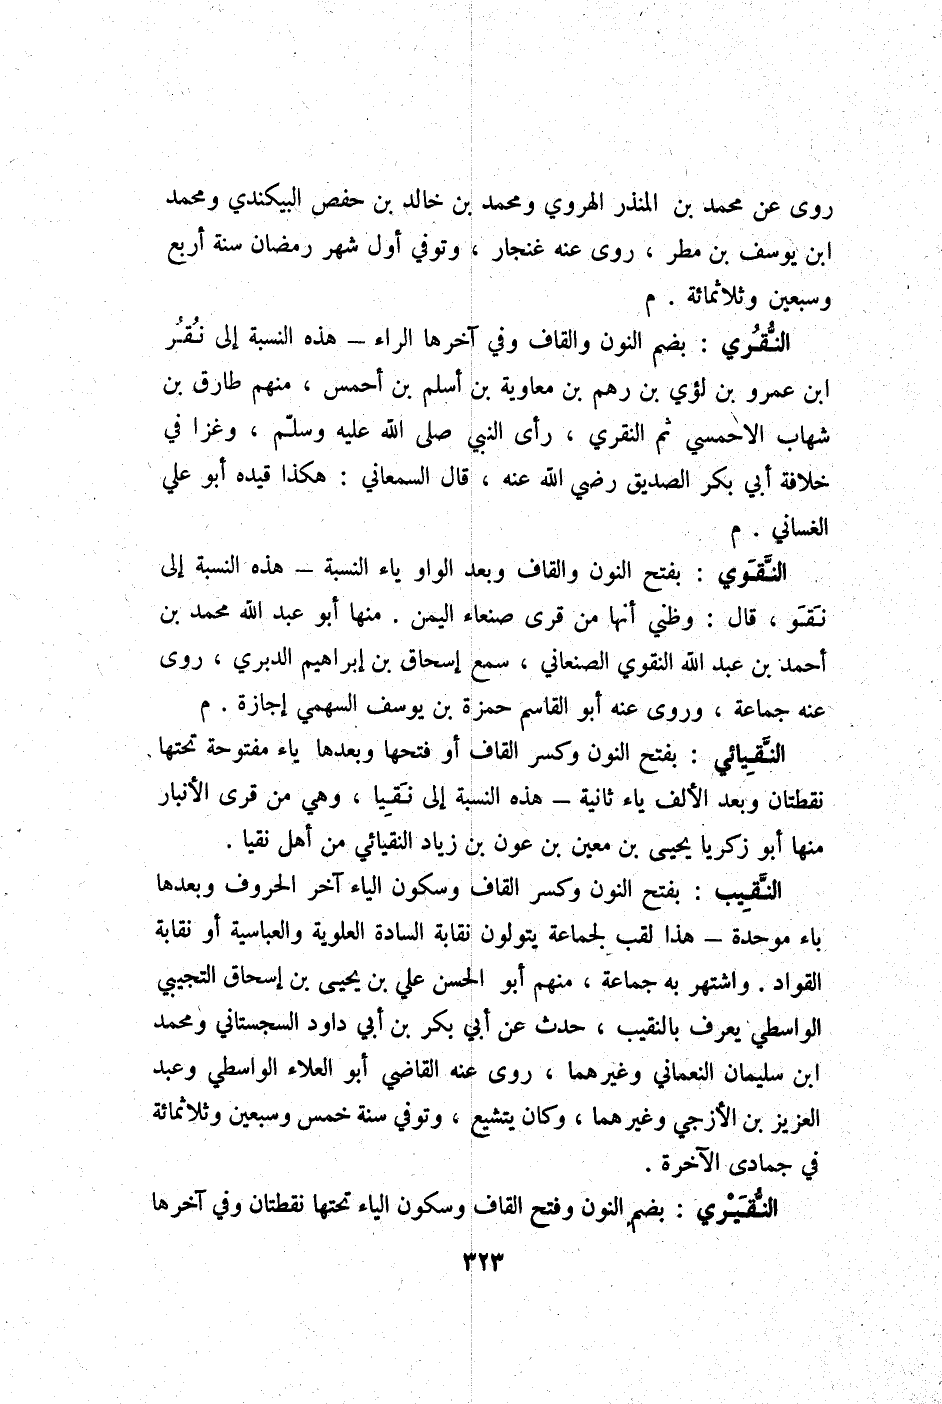 روى عن محمد بن المنذر الهروي ومحمد بن خالد بن حفص البيكندي ومحمد
ابن يوسف بن مطر ، روى عنه غنجار ، وتوفي أول شهر رمضان سنة أربع
وسبعين وثلاثمائة . م
النُّقُري : بضم النون والقاف وفي آخرها الراء – هذه النسبة إلى نُقُر
ابن عمرو بن لؤي بن رهم بن معاوية بن أسلم بن أحمس ، منهم طارق بن
شهاب الاحمسي ثم النقري ، رأى النبي صلى الله عليه وسلّم ، وغزا في
خلافة أبي بكر الصديق رضي الله عنه ، قال السمعاني : هكذا قيده أبو علي
الغساني . م
النَّقَوي : بفتح النون والقاف وبعد الواو ياء النسبة – هذه النسبة إلى
نَقَو ، قال : وظني أنها من قرى صنعاء اليمن . منها أبو عبد الله محمد بن
أحمد بن عبد الله النقوي الصنعاني ، سمع إسحاق بن إبراهيم الدبري ، روى
عنه جماعة ، وروى عنه أبو القاسم حمزة بن يوسف السهمي إجازة . م
النَّقِيائي : بفتح النون وكسر القاف أو فتحها وبعدها ياء مفتوحة تحتها
نقطتان وبعد الألف ياء ثانية – هذه النسبة إلى نَقِيا ، وهي من قرى الأنبار
منها أبو زكريا يحيى بن معين بن عون بن زياد النقيائي من أهل نقيا .
النَّقِيب : بفتح النون وكسر القاف وسكون الياء آخر الحروف وبعدها
باء موحدة – هذا لقب لجماعة يتولون نقابة السادة العلوية والعباسية أو نقابة
القواد . واشتهر به جماعة ، منهم أبو الحسن علي بن يحيى بن إسحاق التجيبي
الواسطي يعرف بالنقيب ، حدث عن أبي بكر بن أبي داود السجستاني ومحمد
ابن سليمان النعماني وغيرهما ، روى عنه القاضي أبو العلاء الواسطي وعبد
العزيز بن الأزجي وغيرهما ، وكان يتشيع ، وتوفي سنة خمس وسبعين وثلاثمائة
في جمادى الآخرة .
النُّقَيْري : بضم النون وفتح القاف وسكون الياء تحتها نقطتان وفي آخرها
٣٢٣